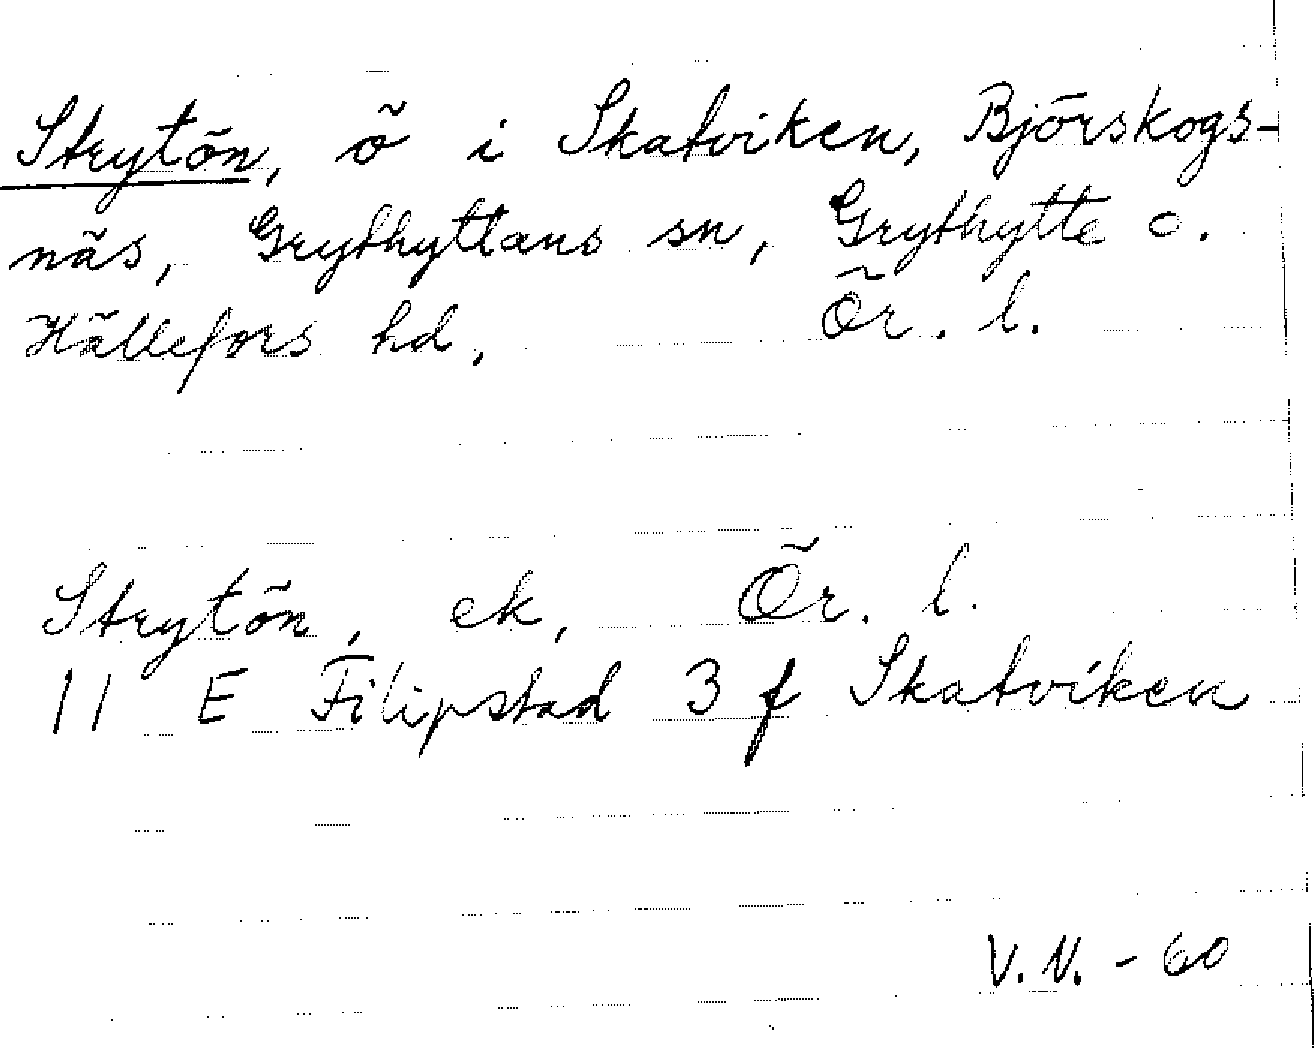 Strytön, ö i Skatviken, Björskogs-
näs, Grythyttans sn, Grythytte o.
Hällefors hd, Ör. l.
Strytön, ek, Ör. l.
11 E Filipstad 3 f Skatviken
V.N. - 60